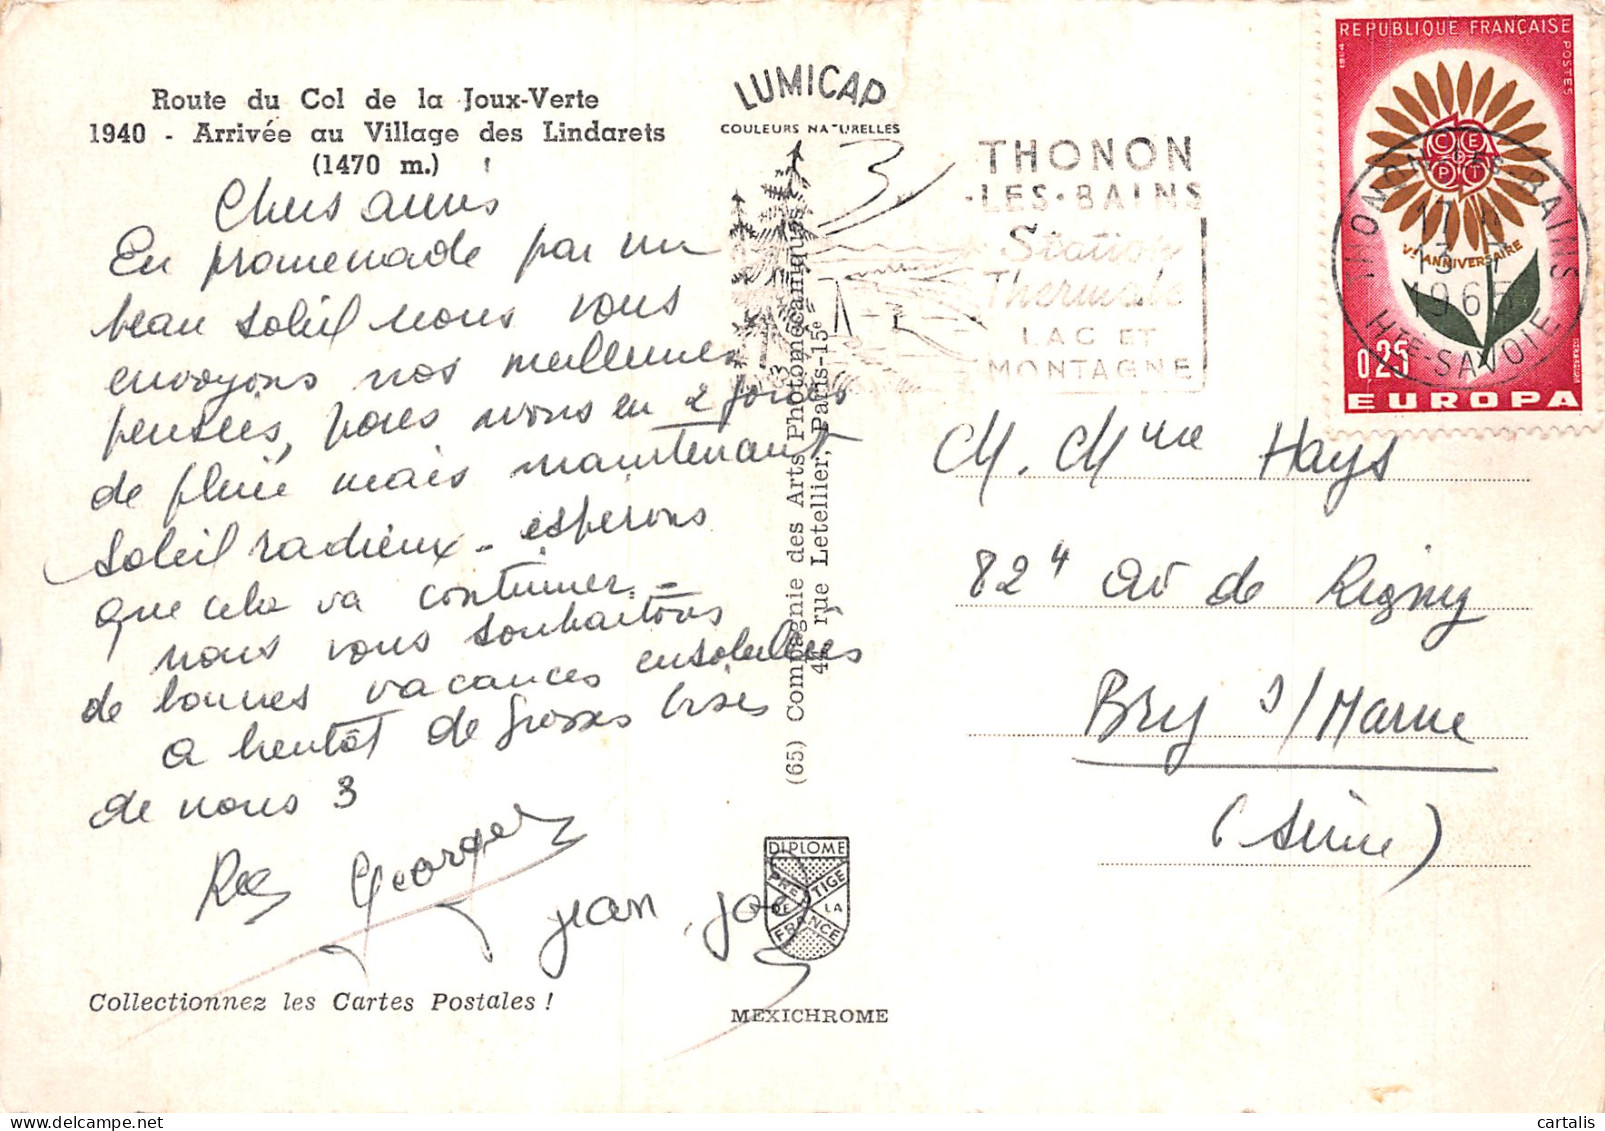 Route du Col de la Joux-Verte
1940 - Arrivée au Village des Lindarets
(1470 m.)
Chers amis
En promenade par un
beau soleil nous vous
envoyons nos meilleures
pensées, nous avons eu 2 jours
de pluie mais maintenant
soleil radieux - espérons
que cela va continuer -
nous vous souhaitons
de bonnes vacances ensoleillées
a bientôt de grosses bises
de nous 3
Georges
jean joë
Collectionnez les Cartes Postales !
LUMICAP
COULEURS NATURELLES
(65) Compagnie des Arts Photomécaniques
rue Letellier, Paris-15e
DIPLOME
PRESTIGE
DE LA
FRANCE
MEXICHROME
THONON
-LES-BAINS
Station
Thermale
LAC ET
MONTAGNE
REPUBLIQUE FRANÇAISE
POSTES
1964
CEPT
Ve ANNIVERSAIRE
0,25
EUROPA
THONON-LES-BAINS
17 H
13 - 7
1965
HTE-SAVOIE
M. Mme Hays
82 4 av de Rigny
Bry s/Marne
(Seine)
cartalis